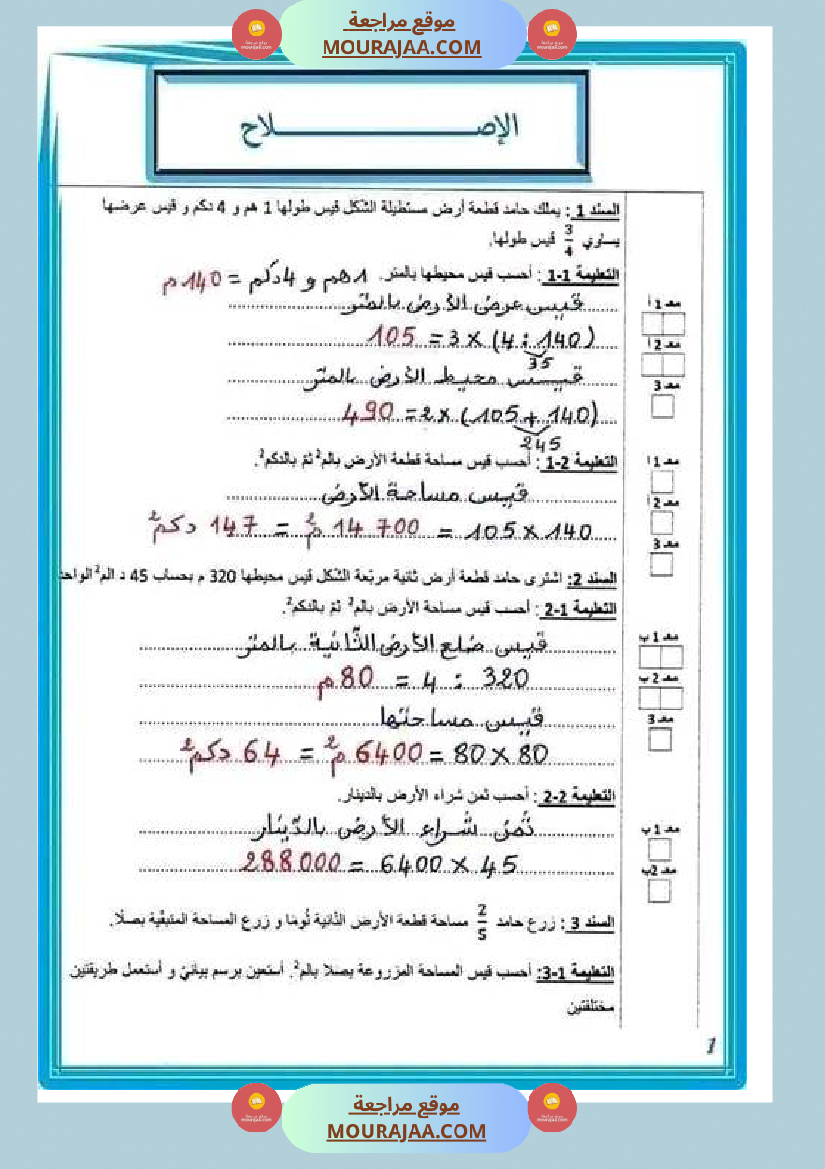 موقع مراجعة
MOURAJAA.COM
الإصـــــــــــلاح
السند 1 : يملك حامد قطعة أرض مستطيلة الشكل قيس طولها 1 هم و 4 دكم و قيس عرضها
يساوي 3/4 قيس طولها.
التعليمة 1-1 : أحسب قيس محيطها بالمتر. 1هم و 4دكم = 140 م
قيس عرض الأرض بالمتر
(140 : 4) × 3 = 105
35
قيس محيط الأرض بالمتر
(140 + 105) × 2 = 490
245
التعليمة 2-1 : أحسب قيس مساحة قطعة الأرض بالم² ثمّ بالدكم².
قيس مساحة الأرض
140 × 105 = 14 700 م² = 147 دكم²
السند 2: اشترى حامد قطعة أرض ثانية مربّعة الشكل قيس محيطها 320 م بحساب 45 د الم² الواحد
التعليمة 1-2 : أحسب قيس مساحة الأرض بالم² ثمّ بالدكم².
قيس ضلع الأرض الثّانية بالمتر
320 : 4 = 80 م
قيس مساحتها
80 × 80 = 6400 م² = 64 دكم²
التعليمة 2-2 : أحسب ثمن شراء الأرض بالدينار.
ثمن شراء الأرض بالدّينار
45 × 6400 = 288000
السند 3 : زرع حامد 2/5 مساحة قطعة الأرض الثّانية ثُومًا و زرع المساحة المتبقّية بصلًا.
التعليمة 1-3: أحسب قيس المساحة المزروعة بصلا بالم². أستعين برسم بيانيّ و أستعمل طريقتين
مختلفتين
مع 1 أ
مع 2 أ
مع 3
مع 1 أ
مع 2 أ
مع 3
مع 1 ب
مع 2 ب
مع 3
مع 1 ب
مع 2 ب
1
موقع مراجعة
MOURAJAA.COM